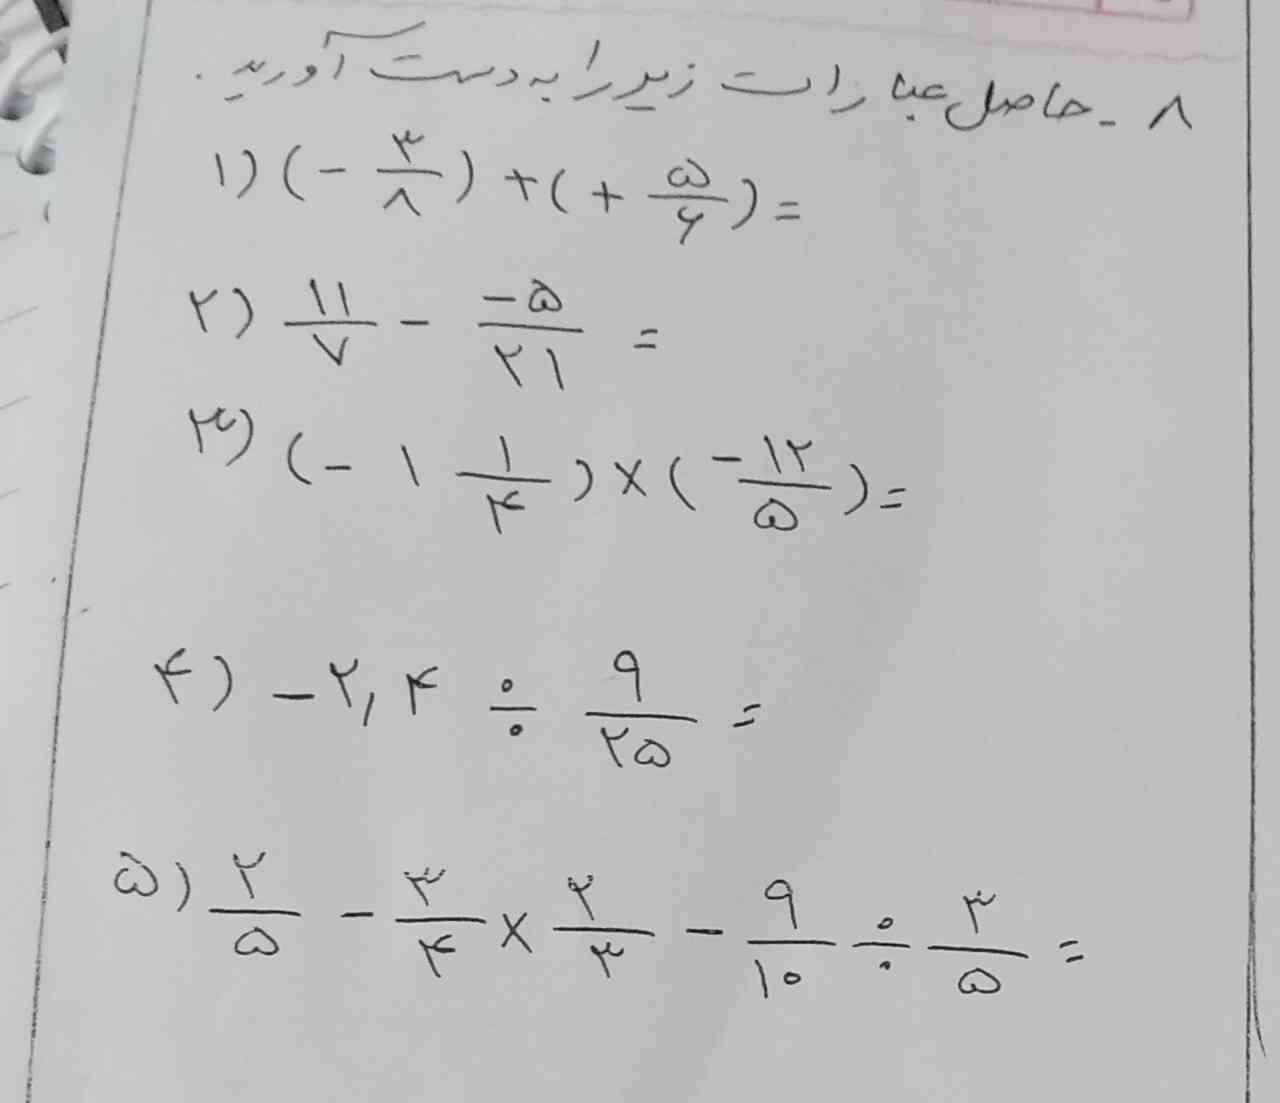 ۸ - حاصل عبارات زیر را به دست آورید.
۱) (- ۳/۸) + (+ ۵/۶) =
۲) ۱۱/۷ - -۵/۲۱ =
۳) (- ۱ ۱/۴) × (-۱۲/۵) =
۴) -۲,۴ ÷ ۹/۲۵ =
۵) ۲/۵ - ۳/۴ × ۲/۳ - ۹/۱۰ ÷ ۳/۵ =